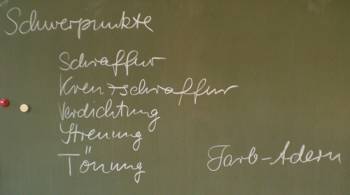 Schwerpunkte
Schraffur
Kreuzschraffur
Verdichtung
Streuung
Tönung
Farb-Adern